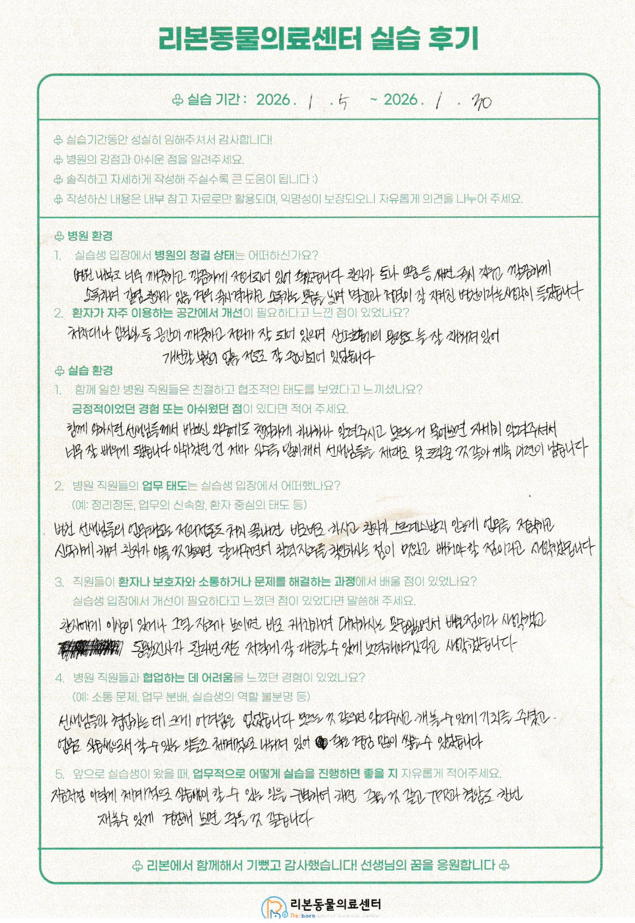 리본동물의료센터 실습 후기
실습 기간 : 2026. 1 . 5 ~ 2026. 1 . 30
실습기간동안 성실히 임해주셔서 감사합니다!
병원의 강점과 아쉬운 점을 알려주세요.
솔직하고 자세하게 작성해 주실수록 큰 도움이 됩니다 :)
작성하신 내용은 내부 참고 자료로만 활용되며, 익명성이 보장되오니 자유롭게 의견을 나누어 주세요.
병원 환경
1. 실습생 입장에서 병원의 청결 상태는 어떠하신가요?
병원 내부도 너무 깨끗하고 깔끔하게 정리되어 있어 좋았습니다 환자가 토나 등 싸면 즉시 치우고 깔끔하게
소독하며 환자가 있을 경우 즉시 격리하고 소독하는 모습을 보며 위생과 청결이 잘 지켜진 병원이라는 생각이 들었습니다
2. 환자가 자주 이용하는 공간에서 개선이 필요하다고 느낀 점이 있었나요?
처치대나 입원실 등 공간이 깨끗하고 정리가 잘 되어 있으며 산소 등 잘 채워져 있어
개선할 부분이 없을 정도로 잘 되어 있었습니다
실습 환경
1. 함께 일한 병원 직원들은 친절하고 협조적인 태도를 보였다고 느끼셨나요?
긍정적이었던 경험 또는 아쉬웠던 점이 있다면 적어 주세요.
함께 일하시던 선생님들께서 바쁘신 와중에도 친절하게 하나하나 알려주시고 모르는 거 물어보면 자세히 알려주셔서
너무 잘 배우게 되었습니다 아쉬웠던 건 제가 실수를 많이 해서 선생님들을 제대로 못 도와준 것 같아 계속 미련이 남습니다
2. 병원 직원들의 업무 태도는 실습생 입장에서 어떠했나요?
(예: 정리정돈, 업무의 신속함, 환자 중심의 태도 등)
병원 선생님들의 업무태도는 정리정돈도 처치 끝나면 바로바로 하시고 환자가 스트레스받지 않게 업무를 적절하고
신속하게 하며 환자가 아플 것 같으면 달래주면서 처치하시는 점이 멋있고 배워야 할 점이라고 생각했습니다
3. 직원들이 환자나 보호자와 소통하거나 문제를 해결하는 과정에서 배울 점이 있었나요?
실습생 입장에서 개선이 필요하다고 느꼈던 점이 있었다면 말씀해 주세요.
환자에게 이상이 있거나 그럴 징조가 보이면 바로 캐치하여 대처하시는 모습을 보면서 배울점이라 생각했고
동물간호사가 된다면 저도 저렇게 잘 다룰 수 있게 노력해야겠다고 생각했습니다
4. 병원 직원들과 협업하는 데 어려움을 느꼈던 경험이 있었나요?
(예: 소통 문제, 업무 분배, 실습생의 역할 불분명 등)
선생님들과 협업하는 데 크게 어려움은 없었습니다 모르는 것 같으면 알려주시고 해볼 수 있게 기회를 주셨고
업무도 실습생으로서 할 수 있는 업무로 체계적으로 나눠져 있어 좋은 경험 많이 쌓을 수 있었습니다
5. 앞으로 실습생이 왔을 때, 업무적으로 어떻게 실습을 진행하면 좋을 지 자유롭게 적어주세요.
지금처럼 이렇게 체계적으로 실습생이 할 수 있는 일을 구분하여 하면 좋을 것 같고 TPR과 혈압도 한번
재볼 수 있게 경험해 보면 좋을 것 같습니다
리본에서 함께해서 기뻤고 감사했습니다! 선생님의 꿈을 응원합니다
리본동물의료센터